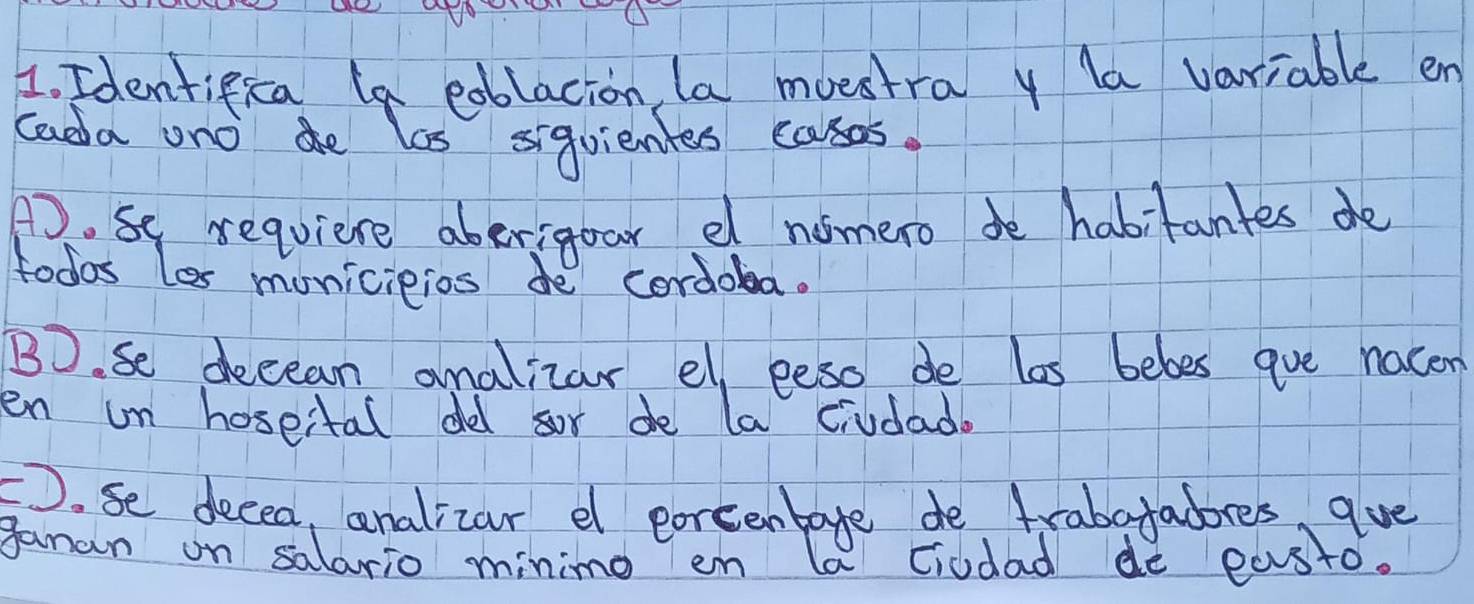 1. Identifica la población, la muestra y la variable en
cada uno de los siguientes casos.
A). Se requiere aberiguar el número de habitantes de
todos los municipios de cordoba.
B). Se decean analizar el peso de los bebes que nacen
en un hospital del sur de la ciudad.
C). Se decea, analizar el porcentage de trabajadores que
ganan un salario minimo en la ciudad de pasto.